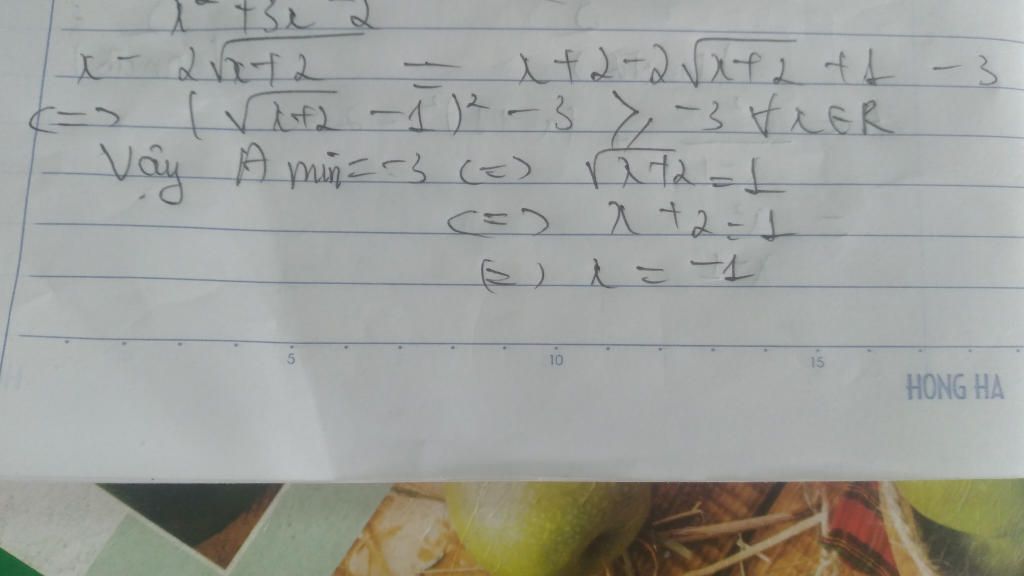 x² + 3x - 2
x - 2√(x+2) = x+2-2√(x+2) +1 - 3
<=> (√(x+2) - 1)² - 3 ⩾ -3 ∀x∈R
Vậy A min = -3 <=> √(x+2) = 1
<=> x + 2 = 1
<=> x = -1
5 10 15
HONG HA